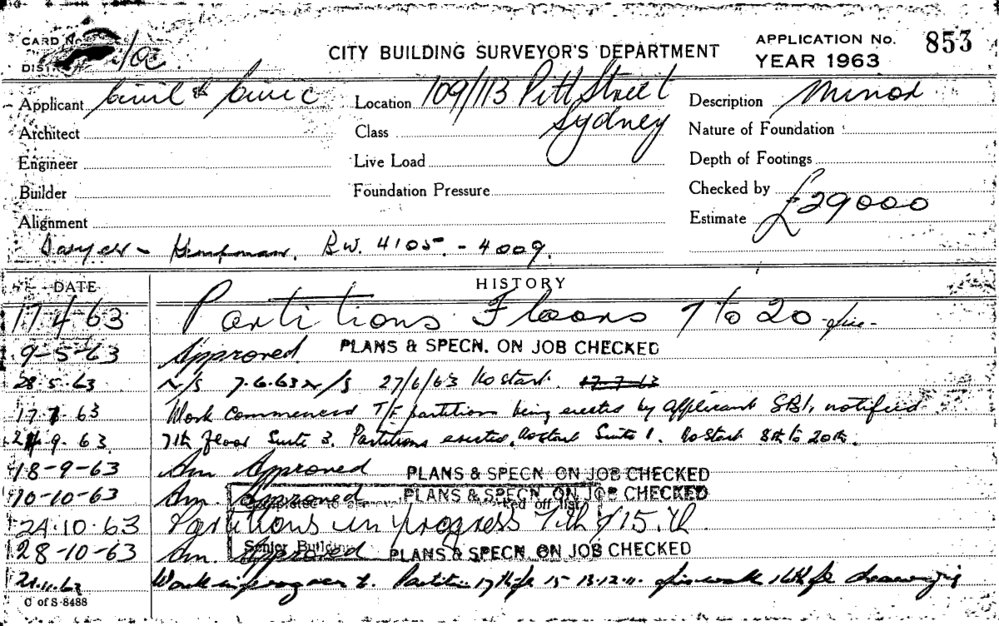 CARD No.
CITY BUILDING SURVEYOR'S DEPARTMENT
APPLICATION No. 853
YEAR 1963
DIST
Applicant Civil & Civic
Location 109/113 Pitt Street
Sydney
Description Minor
Architect
Class
Nature of Foundation
Engineer
Live Load
Depth of Footings
Builder
Foundation Pressure
Checked by
Alignment
Estimate £29000
B.W. 4105 - 4009.
DATE HISTORY
17 4 63 Partitions Floors 7 to 20
9-5-63 Approved PLANS & SPECN. ON JOB CHECKED
28.5.63 N/S 7.6.63 N/S 27/6/63 No start. 17.7.63
17.7.63 Work commenced T/F partition being erected by applicant notified
24-9-63 7th floor Suite 3, Partitions erected, no start Suite 1. No Start 8th to 20th.
18-9-63 Am Approved PLANS & SPECN ON JOB CHECKED
10-10-63 Am. Approved PLANS & SPECN. ON JOB CHECKED
24.10.63 Partitions in progress 7th & 15th
28-10-63 Am Approved PLANS & SPECN. ON JOB CHECKED
Senior Building
21.11.63 Work in progress
C of S-8488